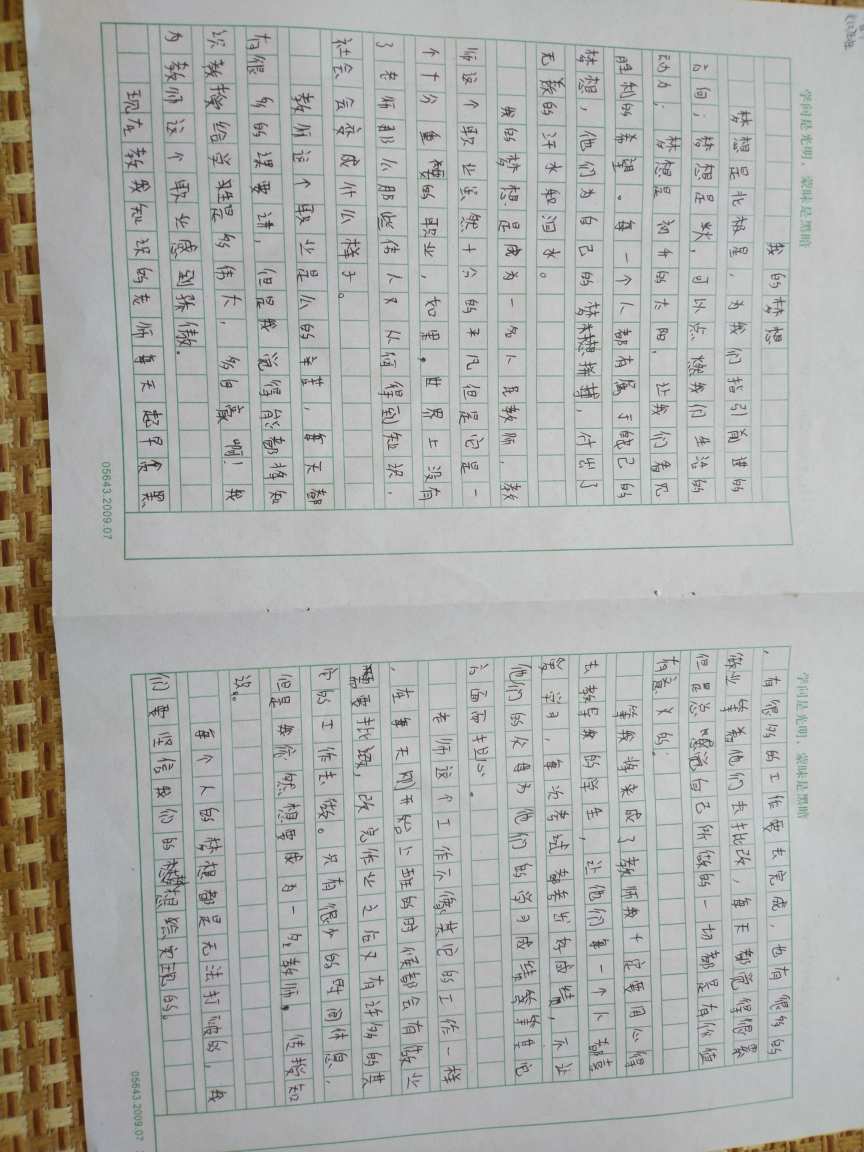 学问是光明，蒙昧是黑暗
我的梦想
梦想是北极星，为我们指引前进的
方向；梦想是火，可以点燃我们生活的
动力；梦想是初升的太阳，让我们看见
胜利的希望。每一个人都有属于自己的
梦想，他们为自己的梦想拼搏，付出了
无数的汗水和泪水。
我的梦想是成为一名人民教师，教
师这个职业虽然十分的平凡但是它是一
个十分重要的职业，如果，世界上没有
了老师那么那些伟人又从何得到知识，
社会会变成什么样子。
教师这个职业是么的辛苦，每天都
有很多的课要讲，但是我觉得能都将知
识教授给学生是多伟大，多自豪啊！我
为教师这个职业感到骄傲。
现在教我知识的老师每天起早贪黑
05643.2009.07
学问是光明，蒙昧是黑暗
，有很多的工作要去完成，也有很多的
作业等着他们去批改，每天都觉得很累
但是总感觉自己所做的一切都是有价值
有意义的；
等我将来成了教师我十定要用心得
去教导我的学生，让他们每一个人都喜
爱学习，每次考试都考出好成绩，不让
他们的父母为他们的学习成绩等等其它
方面而担心。
老师这个工作不像其它的工作一样
，在每天刚开始上班的时候都会有作业
需要批改，改完作业之后又有许多的其
它的工作去做。只有很少的时间休息，
但是我依然想要成为一名教师。传授知
识。
每个人的梦想都是无法打破的，我
们要坚信我们的梦想终究实现的。
05643.2009.07